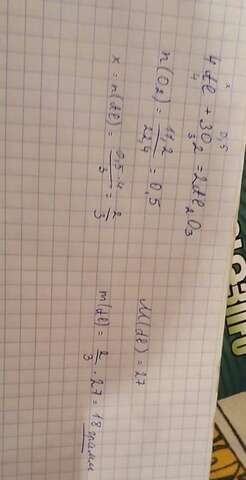 x 0,5
4Al + 3O2 = 2Al2O3
4 3
n(O2) = 11,2/22,4 = 0,5
x = n(Al) = 0,5·4/3 = 2/3
M(Al) = 27
m(Al) = 2/3 · 27 = 18 грамм